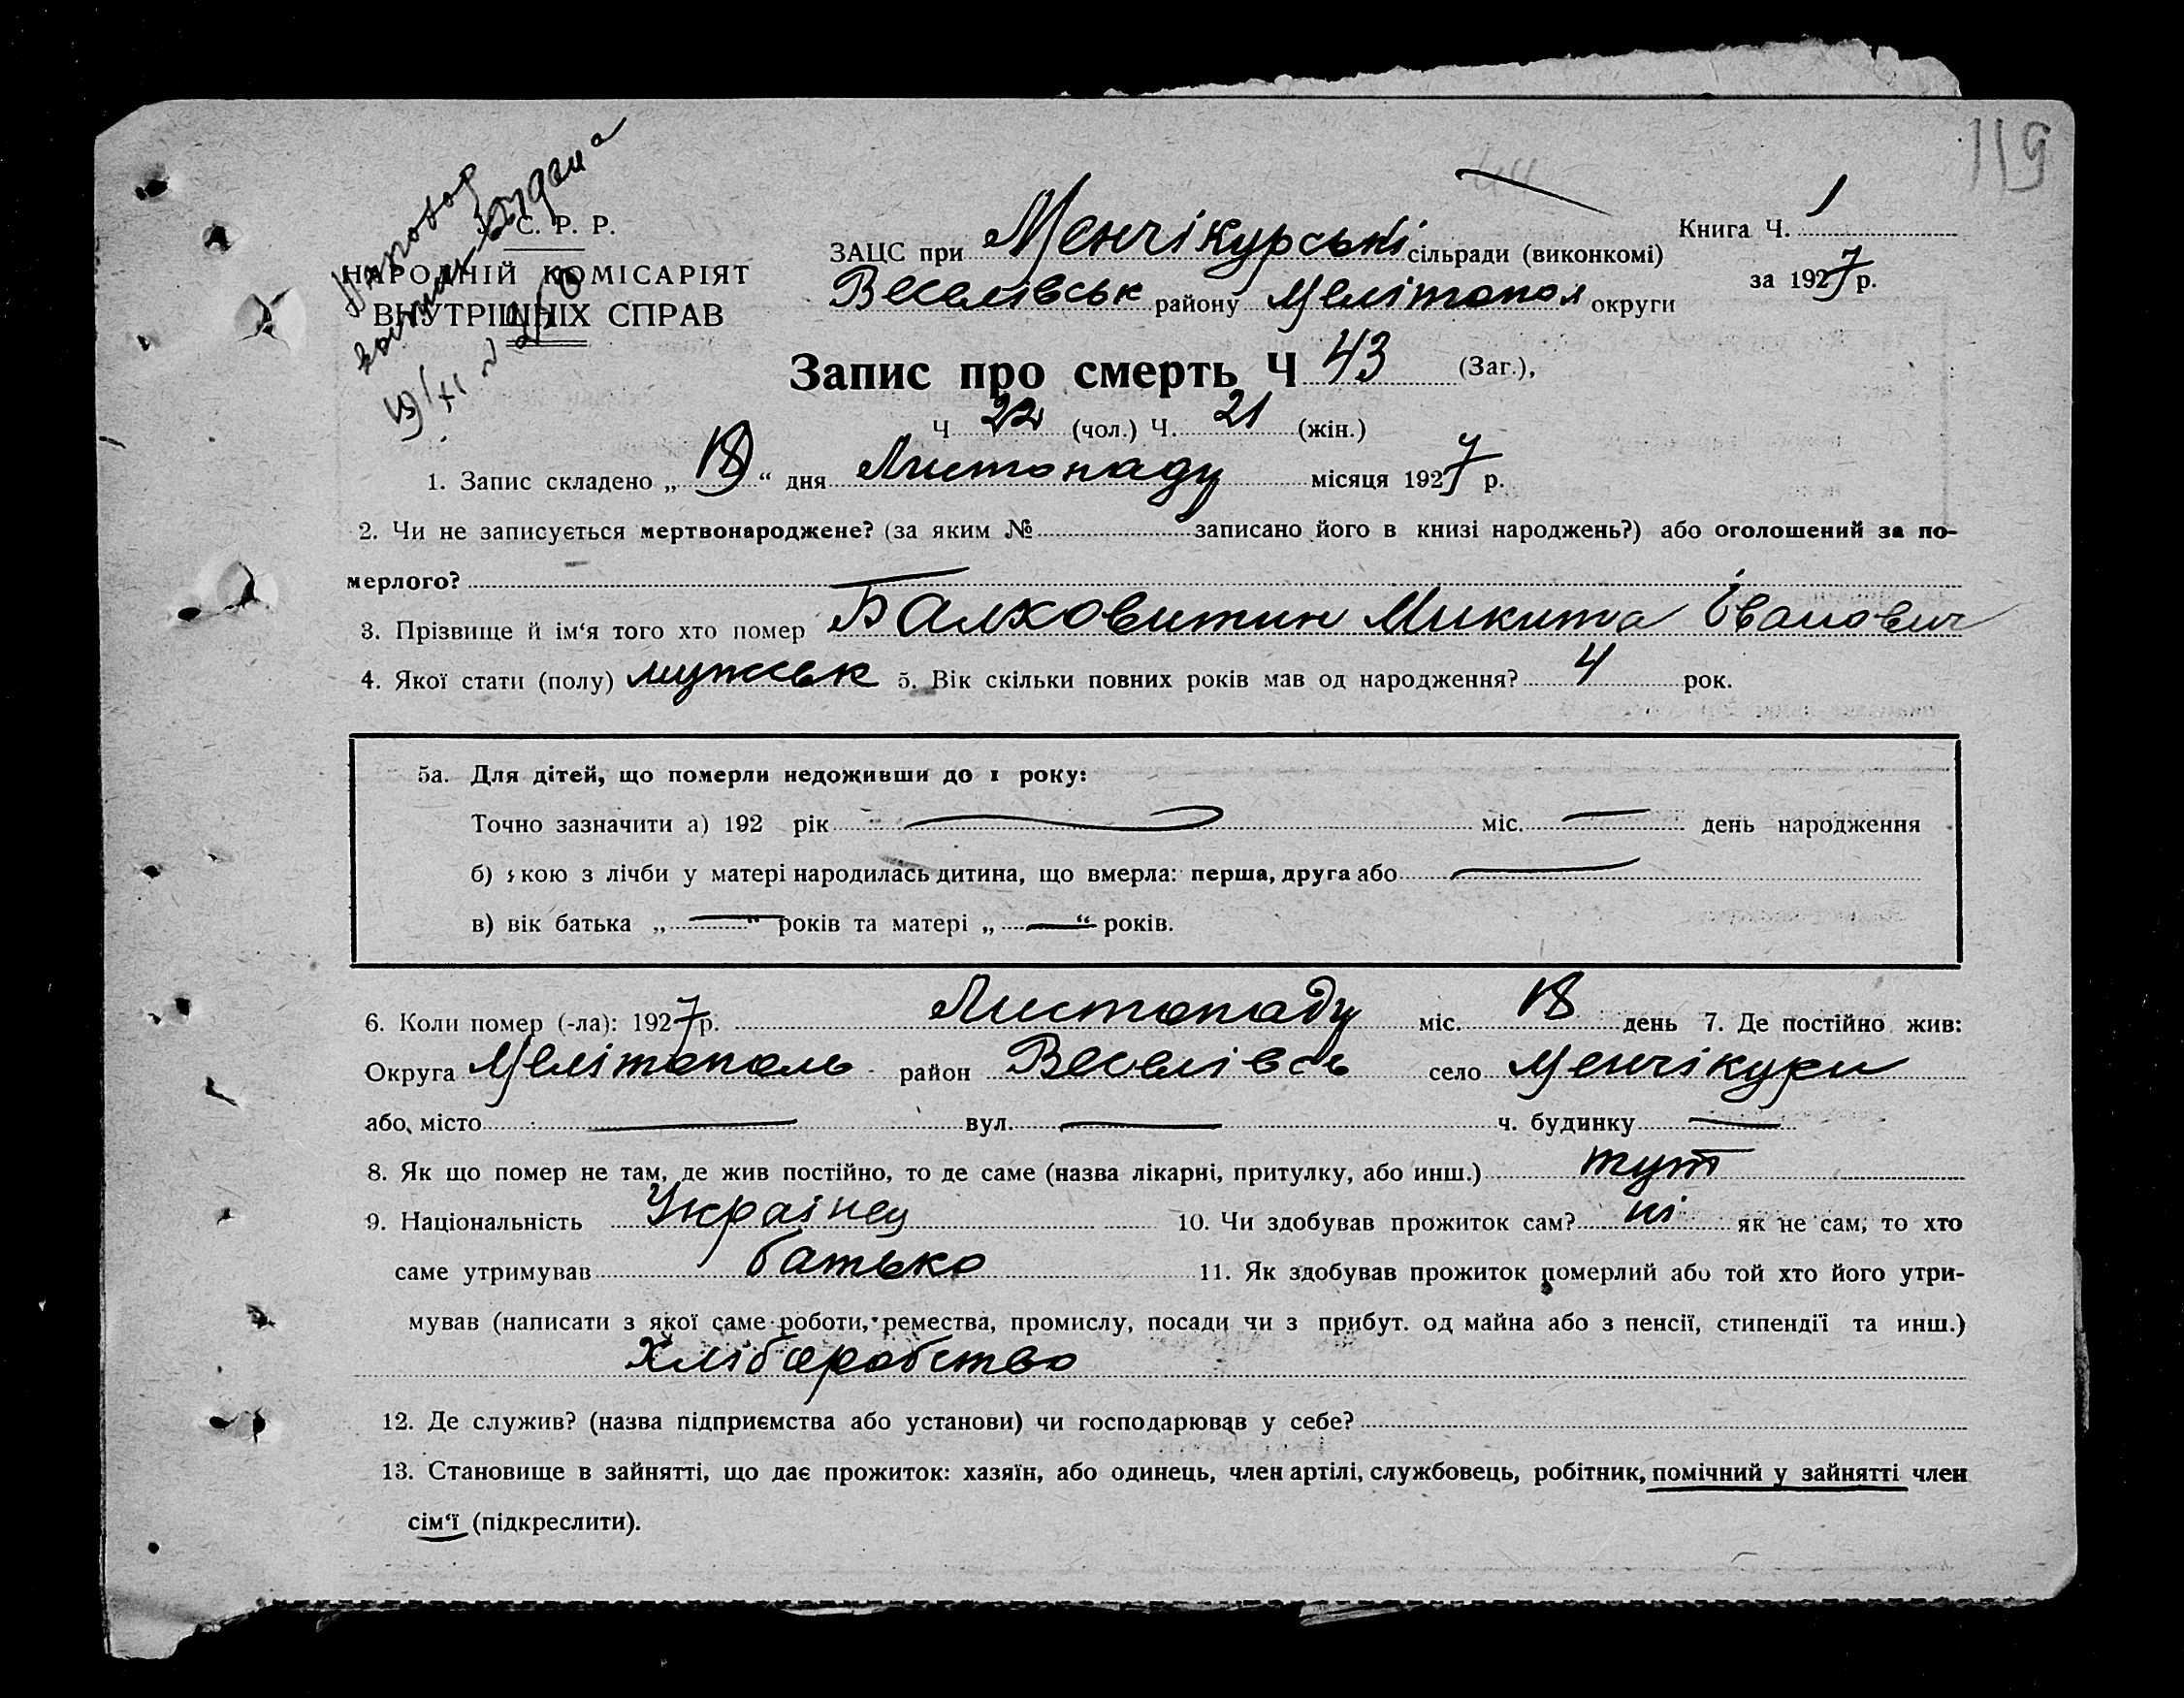 119
44
С. Р. Р.
НАРОДНІЙ КОМІСАРІЯТ
ВНУТРІШНІХ СПРАВ
19/XI
ЗАЦС при Менчікурські сільради (виконкомі)
Книга Ч. 1
Веселівськ району Мелітопол округи
за 1927 р.
Запис про смерть Ч 43 (Заг.),
Ч 22 (чол.) Ч. 21 (жін.)
1. Запис складено „18“ дня Листопаду місяця 1927 р.
2. Чи не записується мертвонароджене? (за яким № записано його в книзі народжень?) або оголошений за по-
мерлого?
3. Прізвище й ім‘я того хто помер Балховитин Микита Іванович
4. Якої стати (полу) мужськ 5. Вік скільки повних років мав од народження? 4 рок.
5а. Для дітей, що померли недоживши до 1 року:
Точно зазначити а) 192 рік — міс. — день народження
б) якою з лічби у матері народилась дитина, що вмерла: перша, друга або —
в) вік батька „—“ років та матері „—“ років.
6. Коли помер (-ла): 1927 р. Листопаду міс. 18 день 7. Де постійно жив:
Округа Мелітополь район Веселівсь село Менчікури
або, місто — вул. — ч. будинку —
8. Як що помер не там, де жив постійно, то де саме (назва лікарні, притулку, або инш.) тут
9. Національність Українец 10. Чи здобував прожиток сам? ні як не сам, то хто
саме утримував батько 11. Як здобував прожиток померлий або той хто його утри-
мував (написати з якої саме роботи, ремества, промислу, посади чи з прибут. од майна або з пенсії, стипендії та инш.)
Хліборобство
12. Де служив? (назва підприємства або установи) чи господарював у себе?
13. Становище в зайнятті, що дає прожиток: хазяїн, або одинець, член артілі, службовець, робітник, помічний у зайнятті член
сім‘ї (підкреслити).